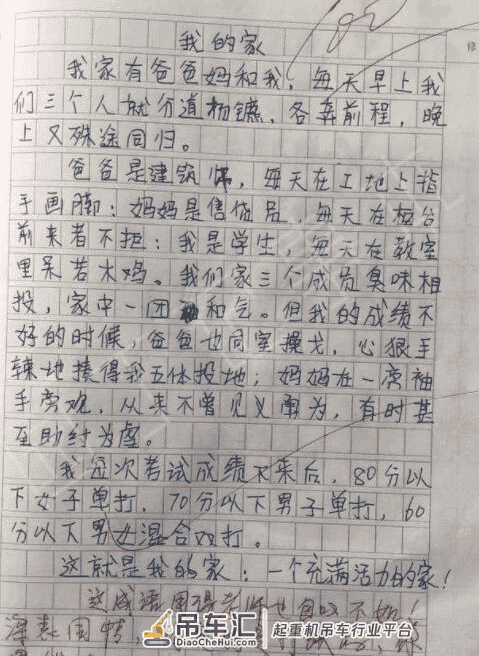 我的家
我家有爸爸妈和我，每天早上我
们三个人就分道扬镳，各奔前程，晚
上又殊途同归。
爸爸是建筑师，每天在工地上指
手画脚；妈妈是售货员，每天在柜台
前来者不拒；我是学生，每天在教室
里呆若木鸡。我们家三个成员臭味相
投，家中一团和气。但我的成绩不
好的时候，爸爸也同室操戈，心狠手
辣地揍得我五体投地；妈妈在一旁袖
手旁观，从来不曾见义勇为，有时甚
至助纣为虐。
我每次考试成绩下来后，80分以
下女子单打，70分以下男子单打，60
分以下男女混合双打。
这就是我的家：一个充满活力的家！
这成语用得老师也自叹不如！
吊车汇 起重机吊车行业平台
www.diaochehui.com